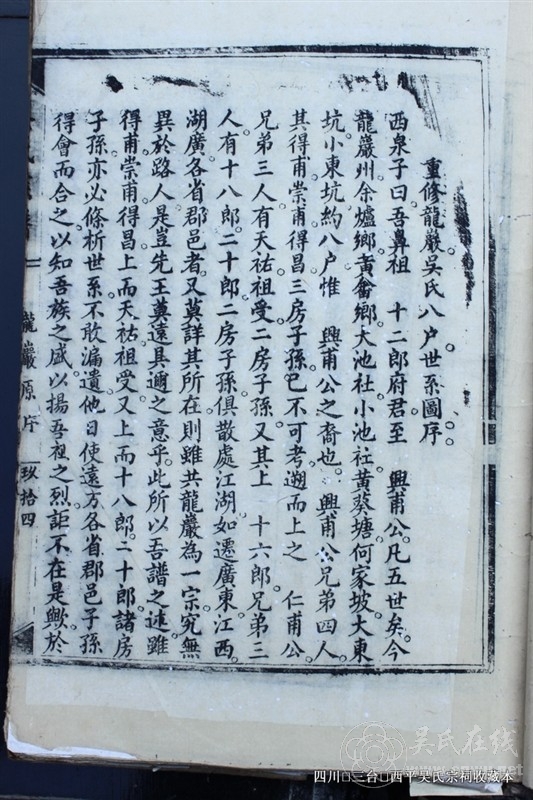 重修龍巖吳氏八户世系圖序
西泉子曰吾鼻祖 十二郎府君至 興甫公凡五世矣今
龍巖州余爐鄉黃畲鄉大池社小池社黃葵塘何家坡大東
坑小東坑約八户惟 興甫公之裔也 興甫公兄弟四人
其得甫崇甫得昌三房子孫已不可考遡而上之 仁甫公
兄弟三人有天祐祖受二房子孫又其上 十六郎兄弟三
人有十八郎二十郎二房子孫俱散處江湖如遷廣東江西
湖廣各省郡邑者又莫詳其所在則雖共龍巖為一宗究無
異於路人是豈先王莫遠具邇之意乎此所以吾譜之述雖
得甫崇甫得昌上而天祐祖受又上而十八郎二十郎諸房
子孫亦必條析世系不敢漏遺他日使遠方各省郡邑子孫
得會而合之以知吾族之盛以揚吾祖之烈詎不在是歟於
龍巖原序
玖拾四
吴氏在线
四川□三台□西平吴氏宗祠收藏本